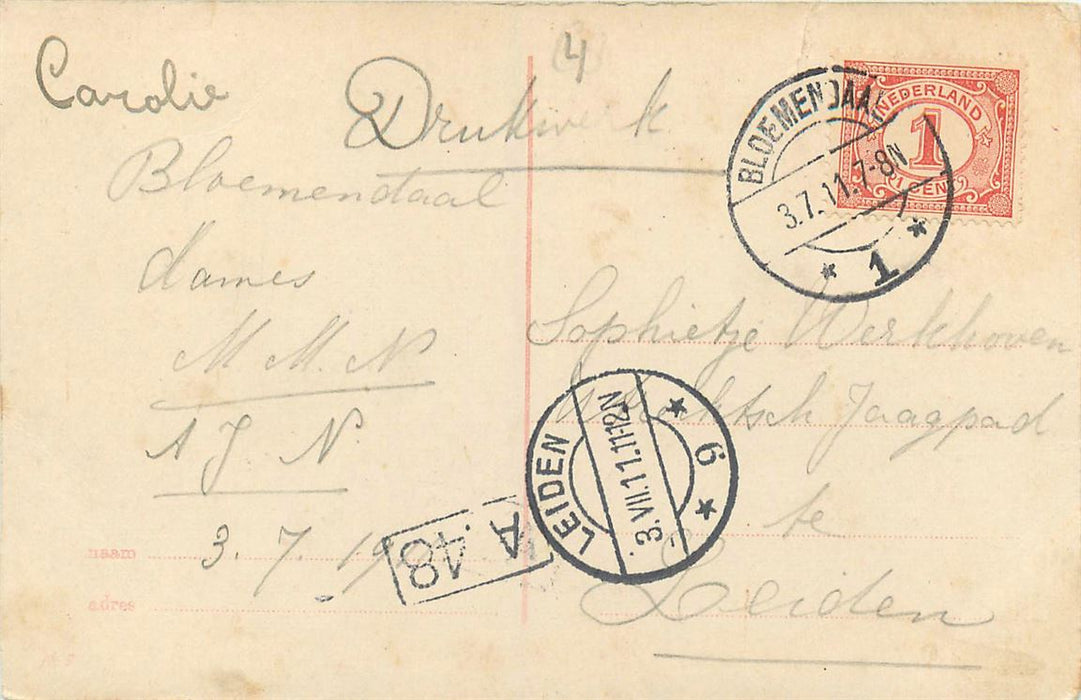 4
Carolie
Drukwerk
Bloemendaal
dames
M M. N
A J N.
naam
3. 7. 19
adres
A. 48
NEDERLAND
1
CENT
BLOEMENDAAL
3.7.11.7-8N
1
Sophietje Werkhoven
Jaagpad
te
Leiden
LEIDEN
3.VII.11.11-12N
6